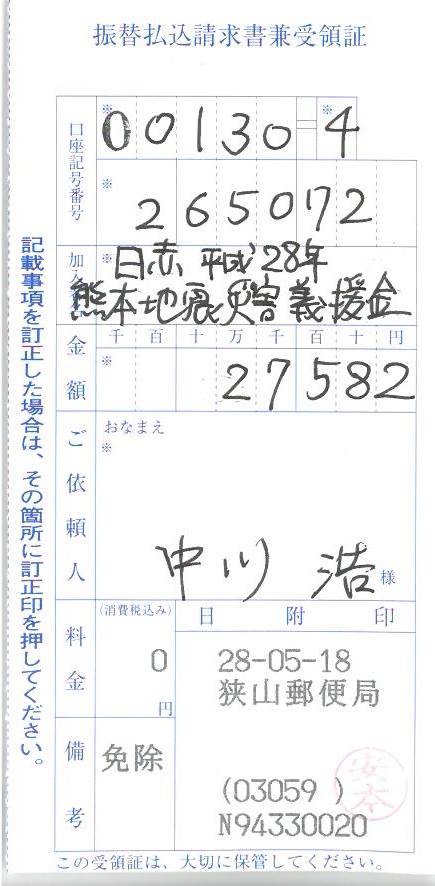 振替払込請求書兼受領証
口座記号番号
※
00130
※
4
※
265072
加入
※
日赤 平成28年
熊本地震災害義援金
金額
千 百 十 万 千 百 十 円
※
27582
ご依頼人
おなまえ
※
中川 浩 様
料金
(消費税込み)
0
円
日 附 印
28-05-18
狭山郵便局
備考
免除
(03059 )
N94330020
安本
この受領証は、大切に保管してください。
記載事項を訂正した場合は、その箇所に訂正印を押してください。